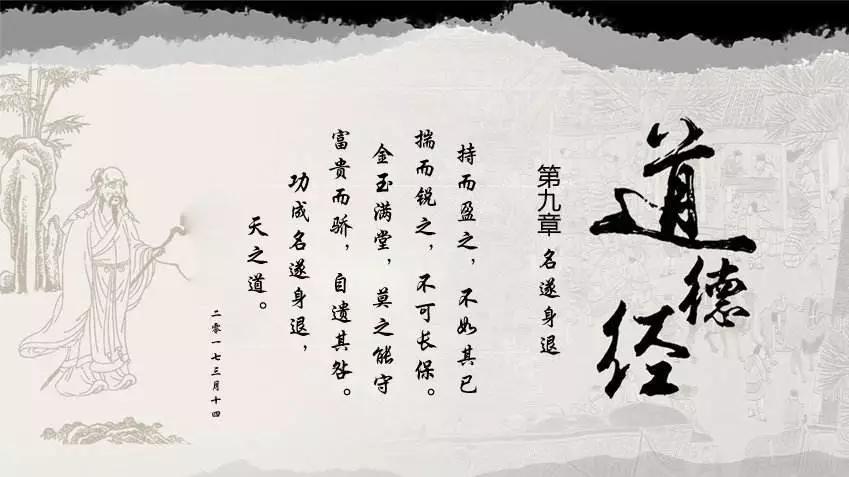 道德经
第九章 名遂身退
持而盈之，不如其已
揣而锐之，不可长保。
金玉满堂，莫之能守
富贵而骄，自遗其咎。
功成名遂身退，
天之道。
二零一七三月十四